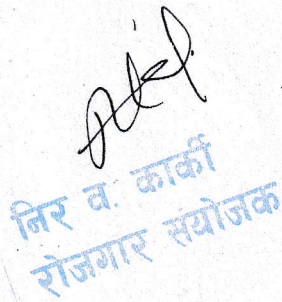 निर व. कार्की
रोजगार संयोजक